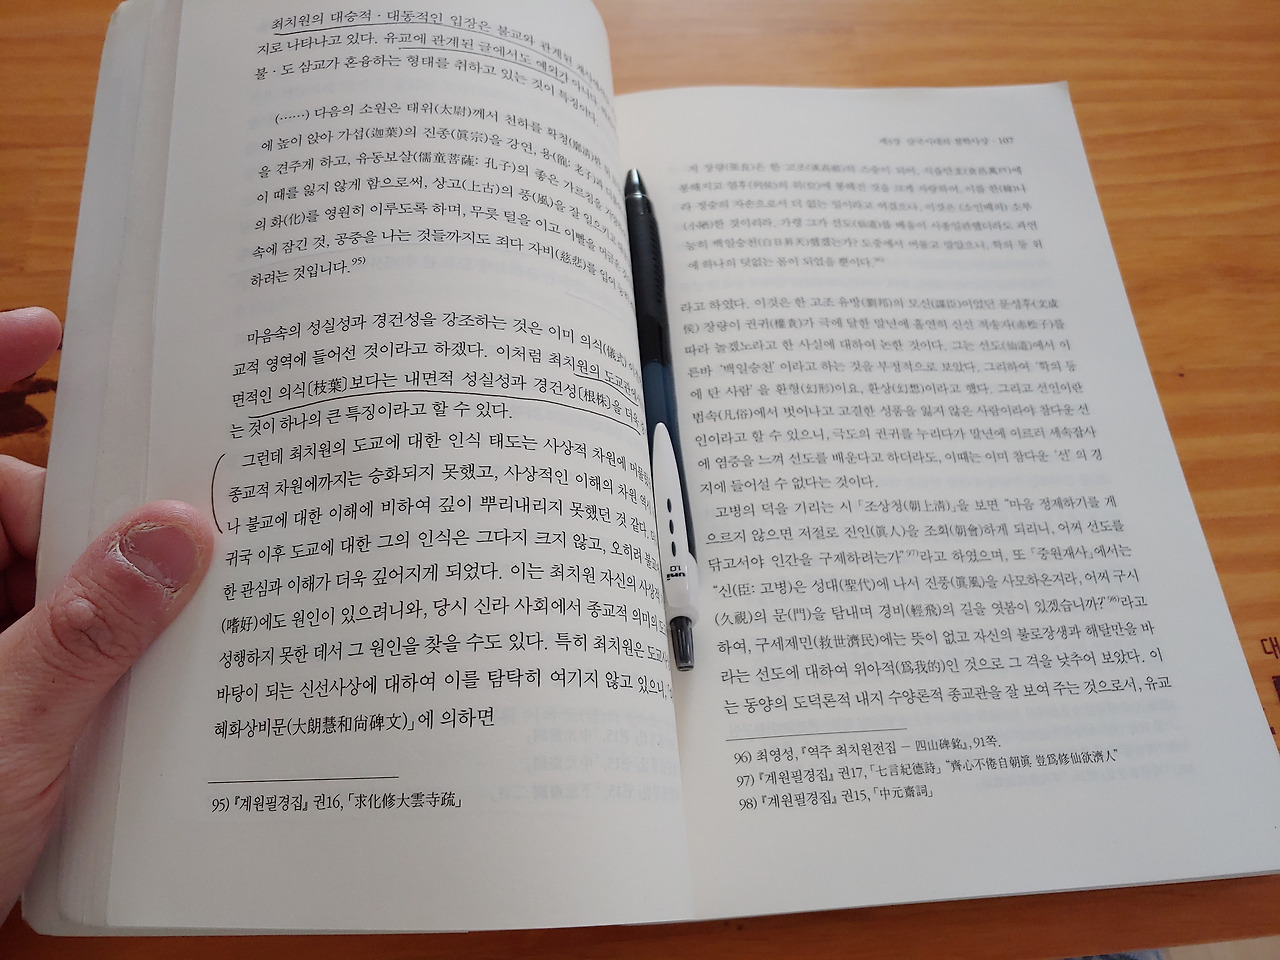 최치원의 대승적·대동적인 입장은 불교와 관계된
지로 나타나고 있다. 유교에 관계된 글에서도 예외가 아니다.
불·도 삼교가 혼융하는 형태를 취하고 있는 것이 특징이다.
(……) 다음의 소원은 태위(太尉)께서 천하를 확청(廓清)
에 높이 앉아 가섭(迦葉)의 진종(眞宗)을 강연, 용(龍: 老子)과
을 견주게 하고, 유동보살(儒童菩薩: 孔子)의 좋은 가르침을
이 때를 잃지 않게 함으로써, 상고(上古)의 풍(風)을 잘 일으키고
의 화(化)를 영원히 이루도록 하며, 무릇 털을 이고 이빨을 머금은
속에 잠긴 것, 공중을 나는 것들까지도 죄다 자비(慈悲)를 입어
하려는 것입니다.95)
마음속의 성실성과 경건성을 강조하는 것은 이미 의식(儀式)
교적 영역에 들어선 것이라고 하겠다. 이처럼 최치원의 도교관에서
면적인 의식[枝葉]보다는 내면적 성실성과 경건성[根株]을 더욱
는 것이 하나의 큰 특징이라고 할 수 있다.
그런데 최치원의 도교에 대한 인식 태도는 사상적 차원에 머물렀
종교적 차원에까지는 승화되지 못했고, 사상적인 이해의 차원 역시
나 불교에 대한 이해에 비하여 깊이 뿌리내리지 못했던 것 같다.
귀국 이후 도교에 대한 그의 인식은 그다지 크지 않고, 오히려 불교
한 관심과 이해가 더욱 깊어지게 되었다. 이는 최치원 자신의 사상적
(嗜好)에도 원인이 있으려니와, 당시 신라 사회에서 종교적 의미의 도
성행하지 못한 데서 그 원인을 찾을 수도 있다. 특히 최치원은 도교
바탕이 되는 신선사상에 대하여 이를 탐탁히 여기지 않고 있으니,
혜화상비문(大朗慧和尙碑文)」에 의하면
95) 『계원필경집』 권16, 「求化修大雲寺疏」
제3장 삼국시대의 철학사상 · 107
저 장량(張良)은 한 고조(漢高祖)의 스승이 되어, 식읍만호(食邑萬戶)에
봉해지고 열후(列侯)의 위(位)에 봉해진 것을 크게 자랑하여, 이를 한(韓)나
라 정승의 자손으로서 더 없는 일이라고 여겼으나, 이것은 (소인배의) 소루
(小陋)한 것이리라. 가령 그가 선도(仙道)를 배움이 시종일관했더라도 과연
능히 백일승천(白日昇天)했겠는가? 도중에서 머물고 말았으니, 학의 등 위
에 하나의 덧없는 몸이 되었을 뿐이다.96)
라고 하였다. 이것은 한 고조 유방(劉邦)의 모신(謀臣)이었던 문성후(文成
侯) 장량이 권귀(權貴)가 극에 달한 말년에 홀연히 신선 적송자(赤松子)를
따라 놀겠노라고 한 사실에 대하여 논한 것이다. 그는 선도(仙道)에서 이
른바 '백일승천' 이라고 하는 것을 부정적으로 보았다. 그리하여 '학의 등
에 탄 사람' 을 환형(幻形)이요, 환상(幻想)이라고 했다. 그리고 선인이란
범속(凡俗)에서 벗어나고 고결한 성품을 잃지 않은 사람이라야 참다운 선
인이라고 할 수 있으니, 극도의 권귀를 누리다가 말년에 이르러 세속잡사
에 염증을 느껴 선도를 배운다고 하더라도, 이때는 이미 참다운 '선' 의 경
지에 들어설 수 없다는 것이다.
고병의 덕을 기리는 시 「조상청(朝上淸)」을 보면 "마음 정제하기를 게
으르지 않으면 저절로 진인(眞人)을 조회(朝會)하게 되리니, 어찌 선도를
닦고서야 인간을 구제하려는가"97)라고 하였으며, 또 「중원재사」에서는
"신(臣: 고병)은 성대(聖代)에 나서 진풍(眞風)을 사모하온지라, 어찌 구시
(久視)의 문(門)을 탐내며 경비(輕飛)의 길을 엿봄이 있겠습니까?"98)라고
하여, 구세제민(救世濟民)에는 뜻이 없고 자신의 불로강생과 해탈만을 바
라는 선도에 대하여 위아적(爲我的)인 것으로 그 격을 낮추어 보았다. 이
는 동양의 도덕론적 내지 수양론적 종교관을 잘 보여 주는 것으로서, 유교
96) 최영성, 『역주 최치원전집 - 四山碑銘』, 91쪽.
97) 『계원필경집』 권17, 「七言紀德詩」 "齊心不倦自朝眞 豈爲修仙欲濟人"
98) 『계원필경집』 권15, 「中元齋詞」
uni 1.0